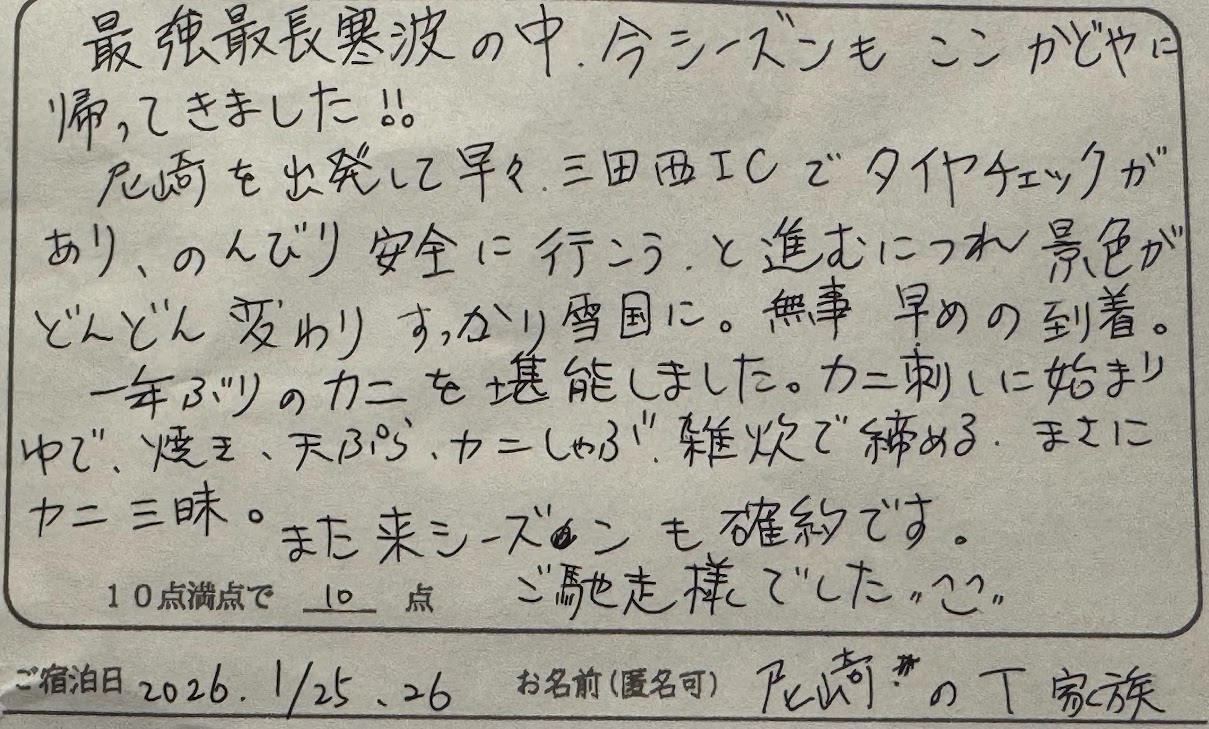 最強最長寒波の中、今シーズンも ここ かどやに
帰ってきました!!
尼崎を出発して早々、三田西ICでタイヤチェックが
あり、のんびり安全に行こう、と進むにつれ景色が
どんどん変わりすっかり雪国に。無事 早めの到着。
一年ぶりのカニを堪能しました。カニ刺しに始まり
ゆで、焼き、天ぷら、カニしゃぶ、雑炊で締める、まさに
カニ三昧。また来シーズンも確約です。
10点満点で 10 点 ご馳走様でした
ご宿泊日 2026. 1/25、26 お名前(匿名可) 尼崎のT家族